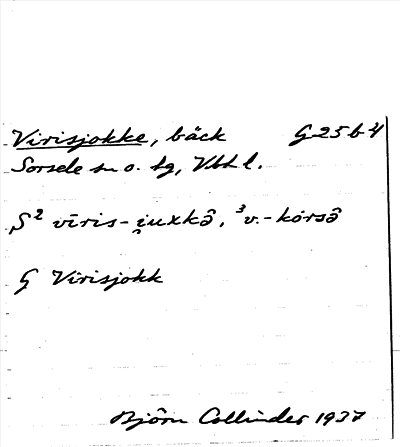 Virisjokke, bäck G 25 b 4
Sorsele sn o. tg, Vbtl.
S² vīris-i̯uxkâ, ³v.-kórsâ
G Virisjokk
Björn Collinder 1937